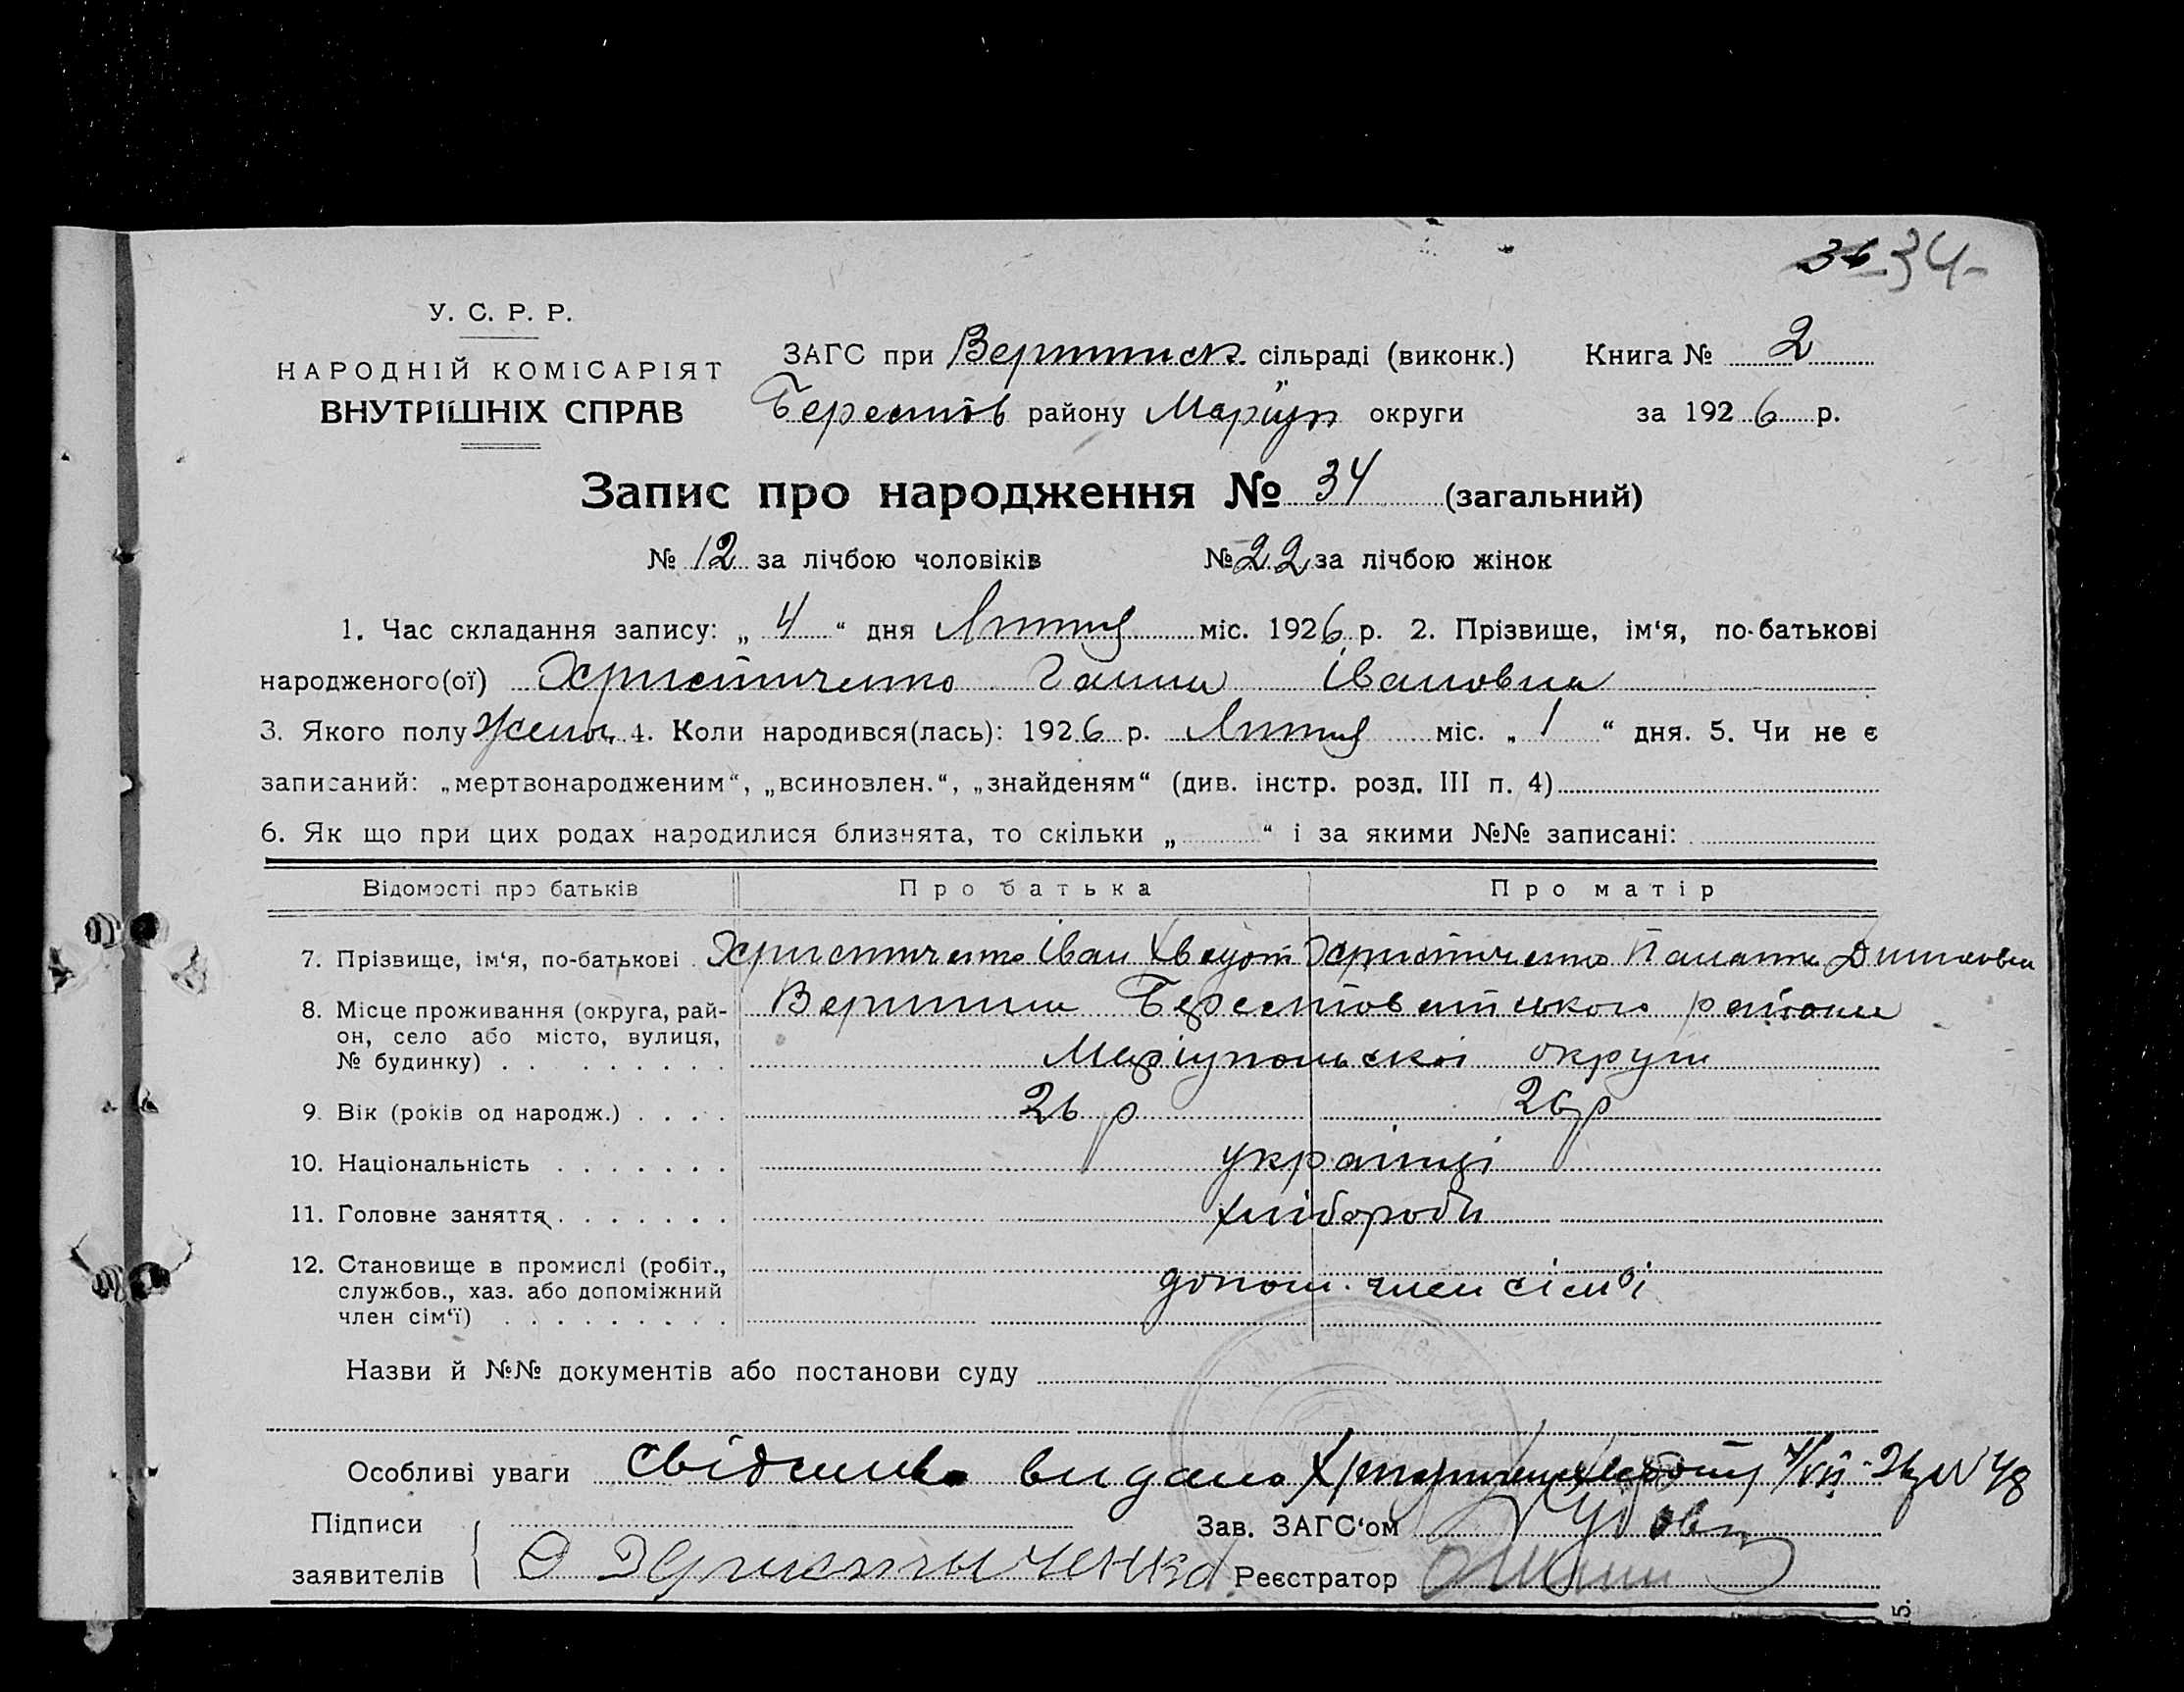 36 34-
У. С. Р. Р.
НАРОДНІЙ КОМІСАРІЯТ
ВНУТРІШНІХ СПРАВ
ЗАГС при Вершинск. сільраді (виконк.) Книга № 2
Берестів району Маріуп округи за 1926 р.
Запис про народження № 34 (загальний)
№ 12 за лічбою чоловіків № 22 за лічбою жінок
1. Час складання запису: „ 4 “ дня міс. 1926 р. 2. Прізвище, ім‘я, по-батькові
народженого(ої) Христиченко Ганна Івановна
3. Якого полу Жіноч. 4. Коли народився(лась): 1926 р. міс. „ 1 “ дня. 5. Чи не є
записаний: „мертвонародженим“, „всиновлен.“, „знайденям“ (див. інстр. розд. III п. 4)
6. Як що при цих родах народилися близнята, то скільки „ “ і за якими №№ записані:
Відомості про батьків Про батька Про матір
7. Прізвище, ім‘я, по-батькові Христиченко Іван Хведот Христиченко
8. Місце проживання (округа, рай-
он, село або місто, вулиця,
№ будинку)
Вершина Берестоватського району
Маріупольскоі округи
9. Вік (років од народж.) 26 р 26 р
10. Національність украінці
11. Головне заняття хлібороби
12. Становище в промислі (робіт.,
службов., хаз. або допоміжний
член сім‘ї)
допом. член сімʼі
Назви й №№ документів або постанови суду
Особливі уваги видано № 48
Підписи
заявителів
Христыченко
Зав. ЗАГС‘ом
Реєстратор
15.